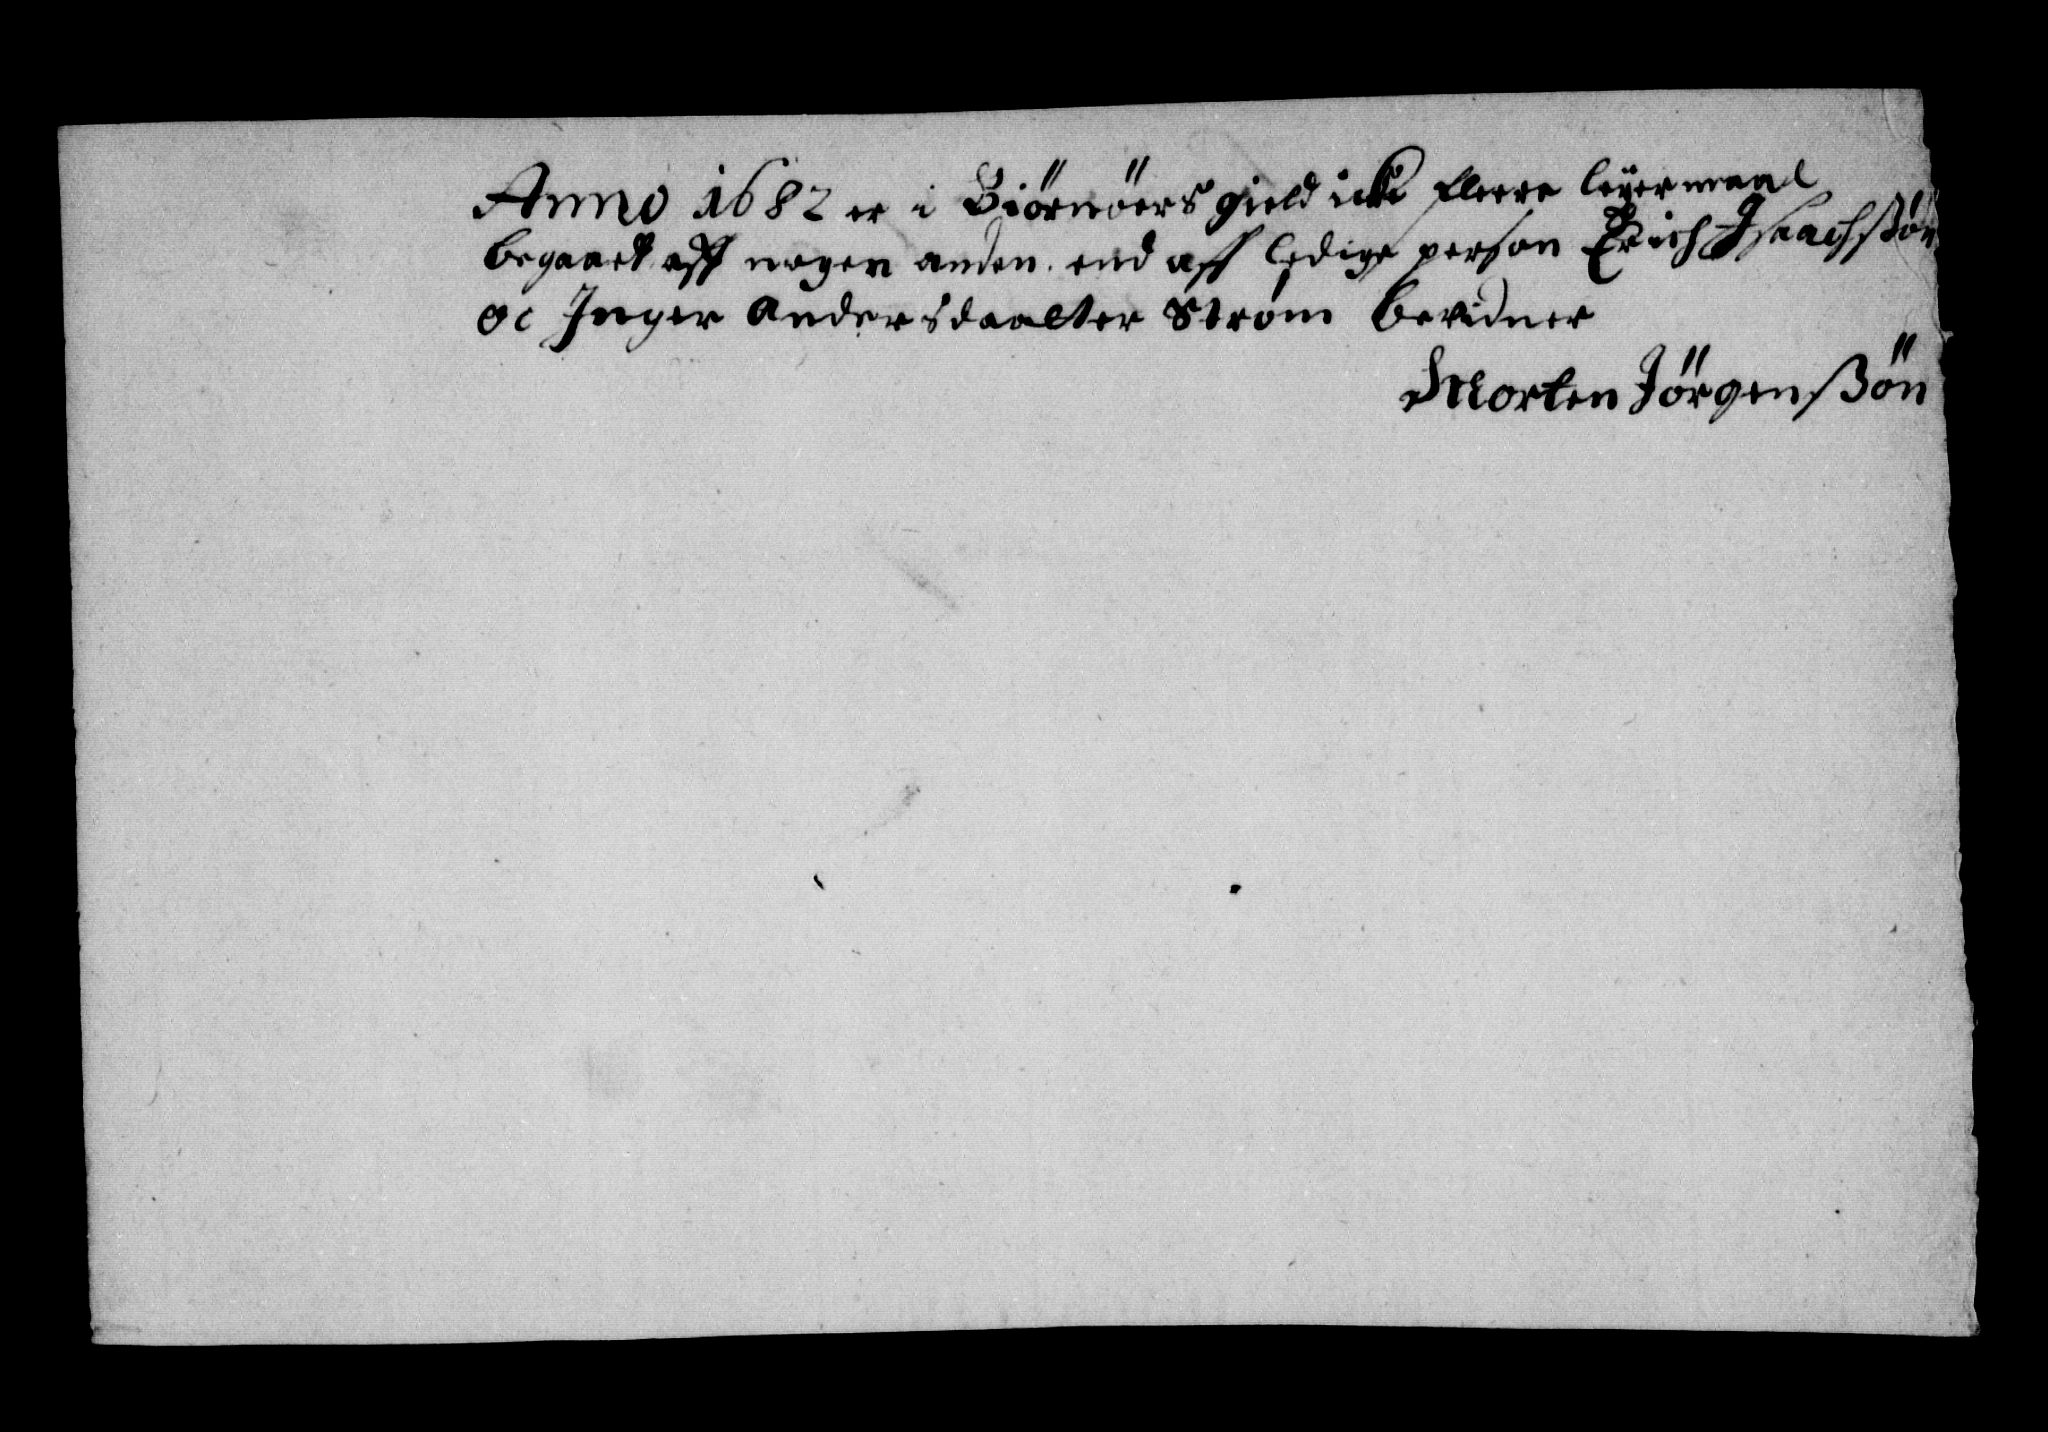 Anno 1682 er i Biörnöers gield icke fleere leÿermaal
begaaet aff nogen anden end aff ledige person Erich Jsaachsßön
oc Jnger Andersdaatter Strøm bevidner
Morten Jörgensßön